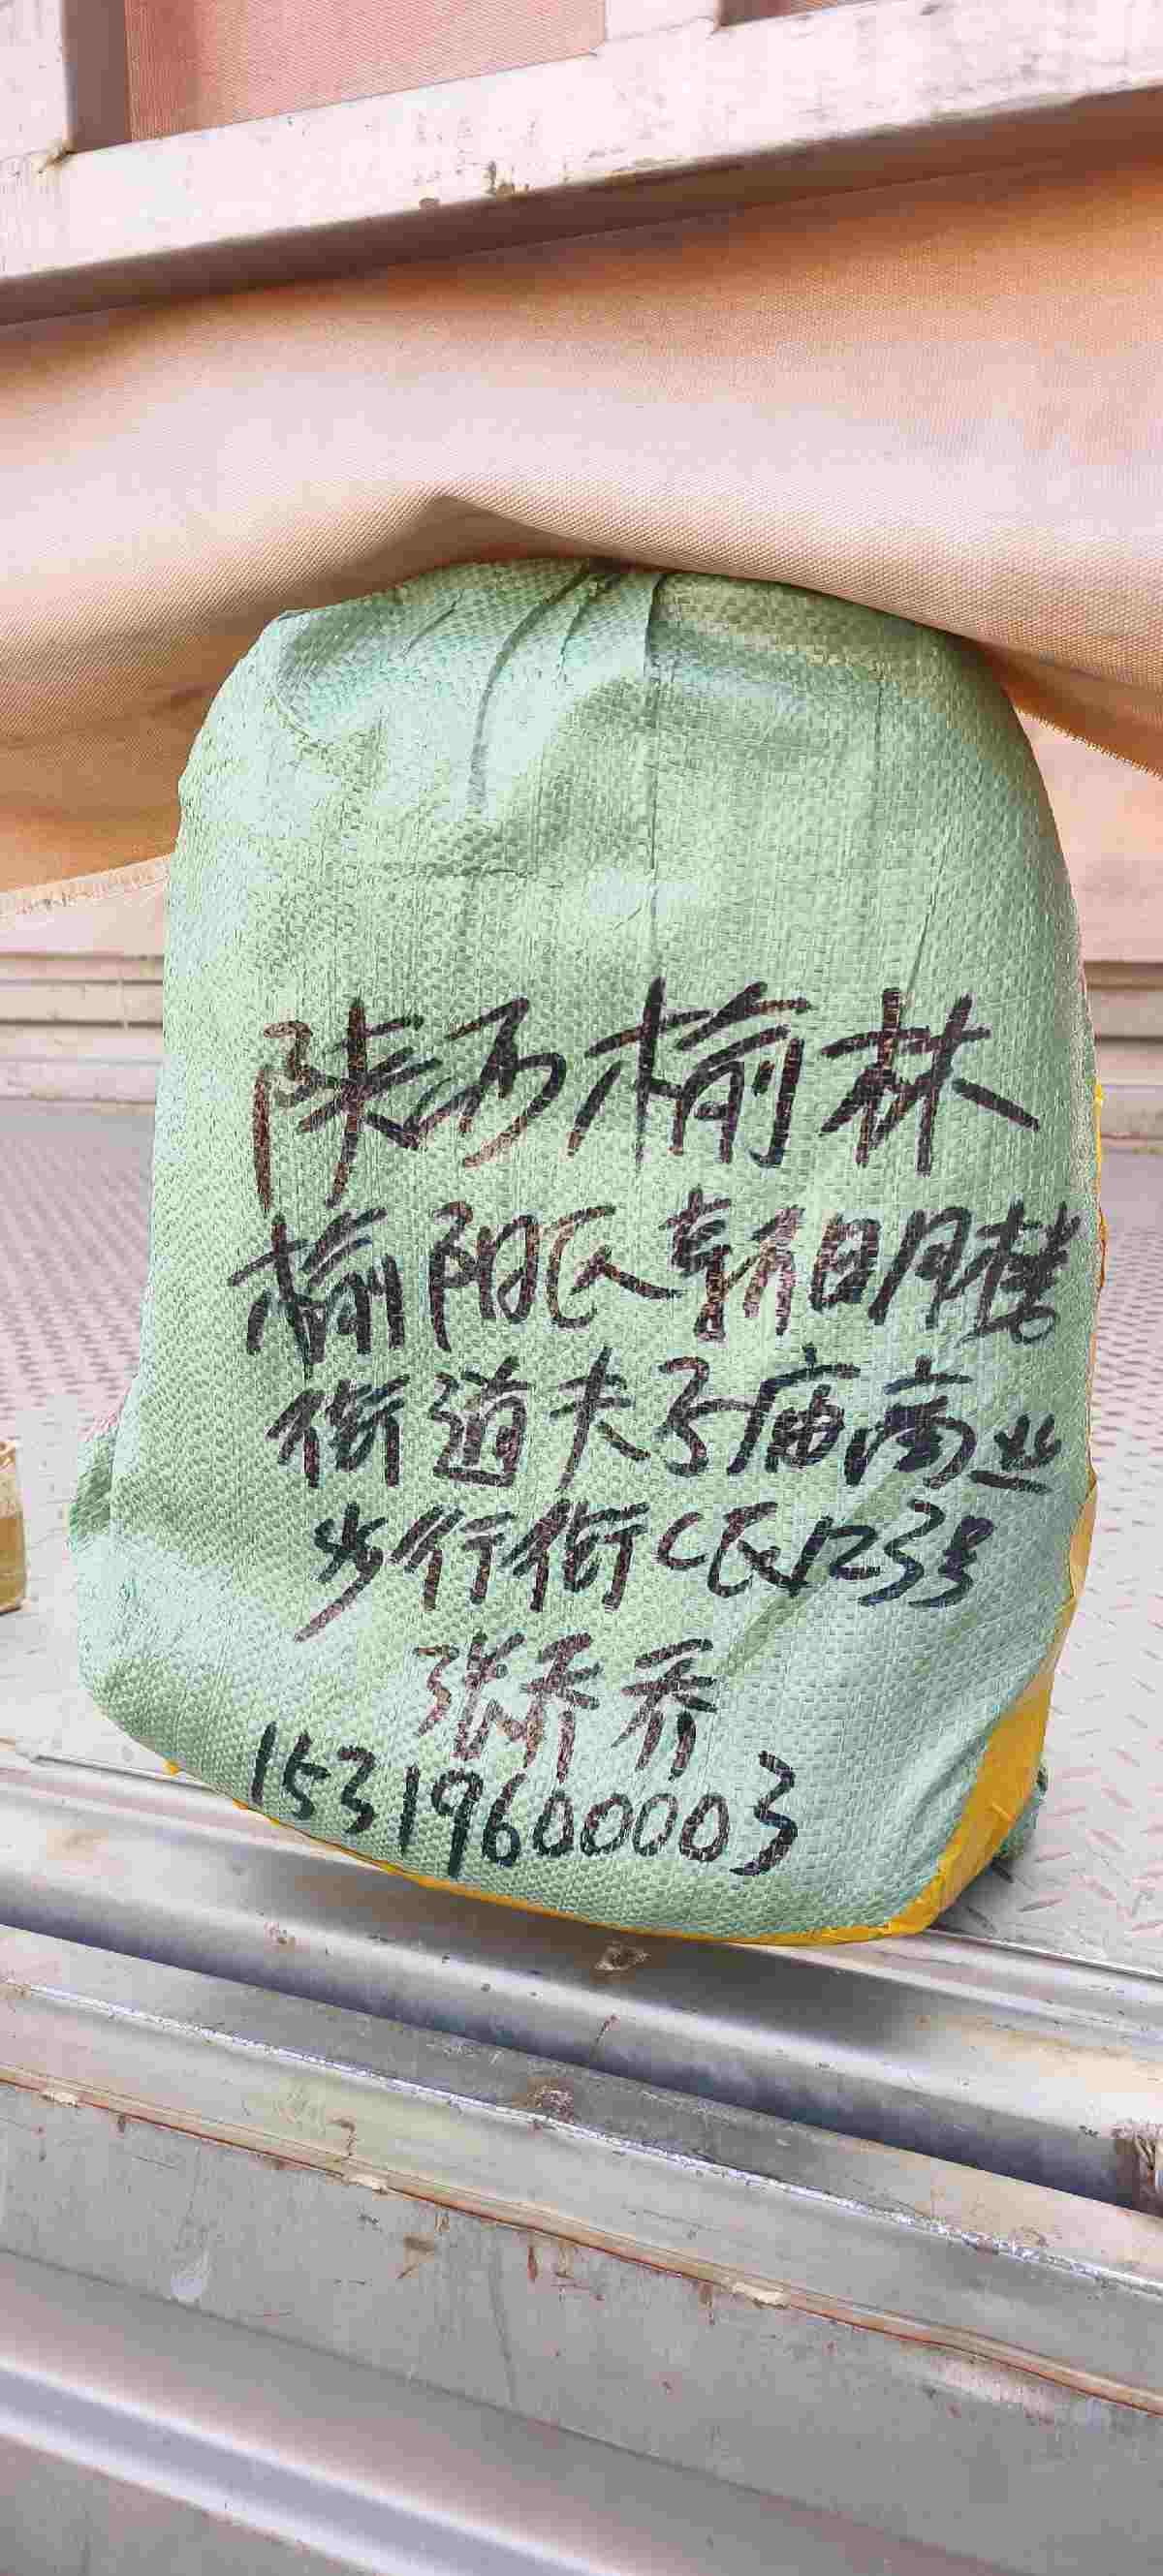 陕西榆林
榆阳区朝阳楼
街道夫子庙商业
步行街C区123号
张乔乔
15319600003